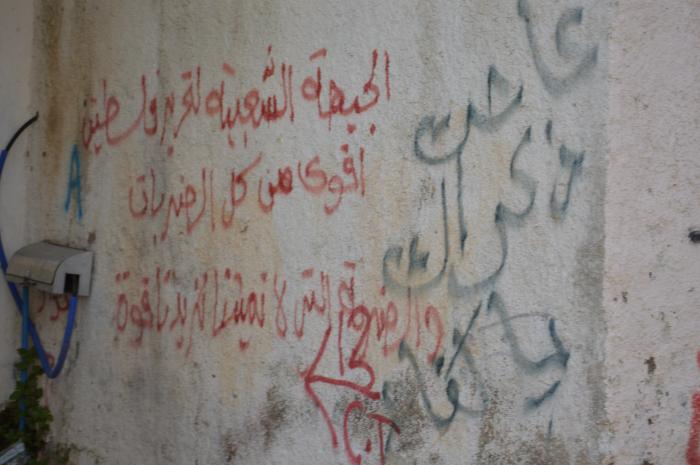 الجبهة الشعبية لتحرير فلسطين
اقوى من كل الضربات
والضربة التي لا تميتنا تزيدنا قوة
عاشت
ذكراك
يا
A